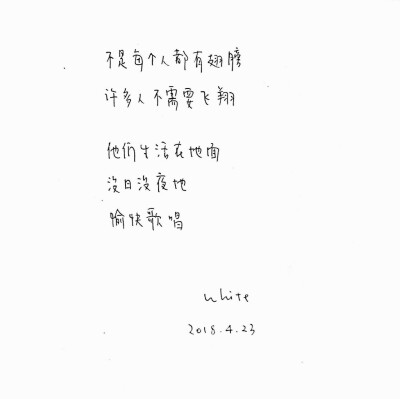 不是每个人都有翅膀
许多人不需要飞翔
他们生活在地面
没日没夜地
愉快歌唱
white
2018.4.23